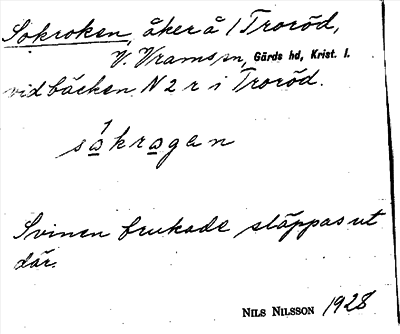 Sokroken, åker å 1 Troröd,
V. Vrams sn, Gärds hd, Krist. l.
vid bäcken N 2 r i Troröd.
sòkrogen
Svinen brukade släppas ut
där.
NILS NILSSON 1928